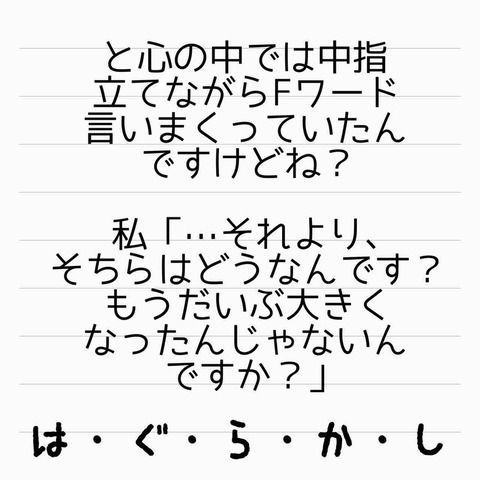 と心の中では中指
立てながらFワード
言いまくっていたん
ですけどね？
私「…それより、
そちらはどうなんです？
もうだいぶ大きく
なったんじゃないん
ですか？」
は・ぐ・ら・か・し